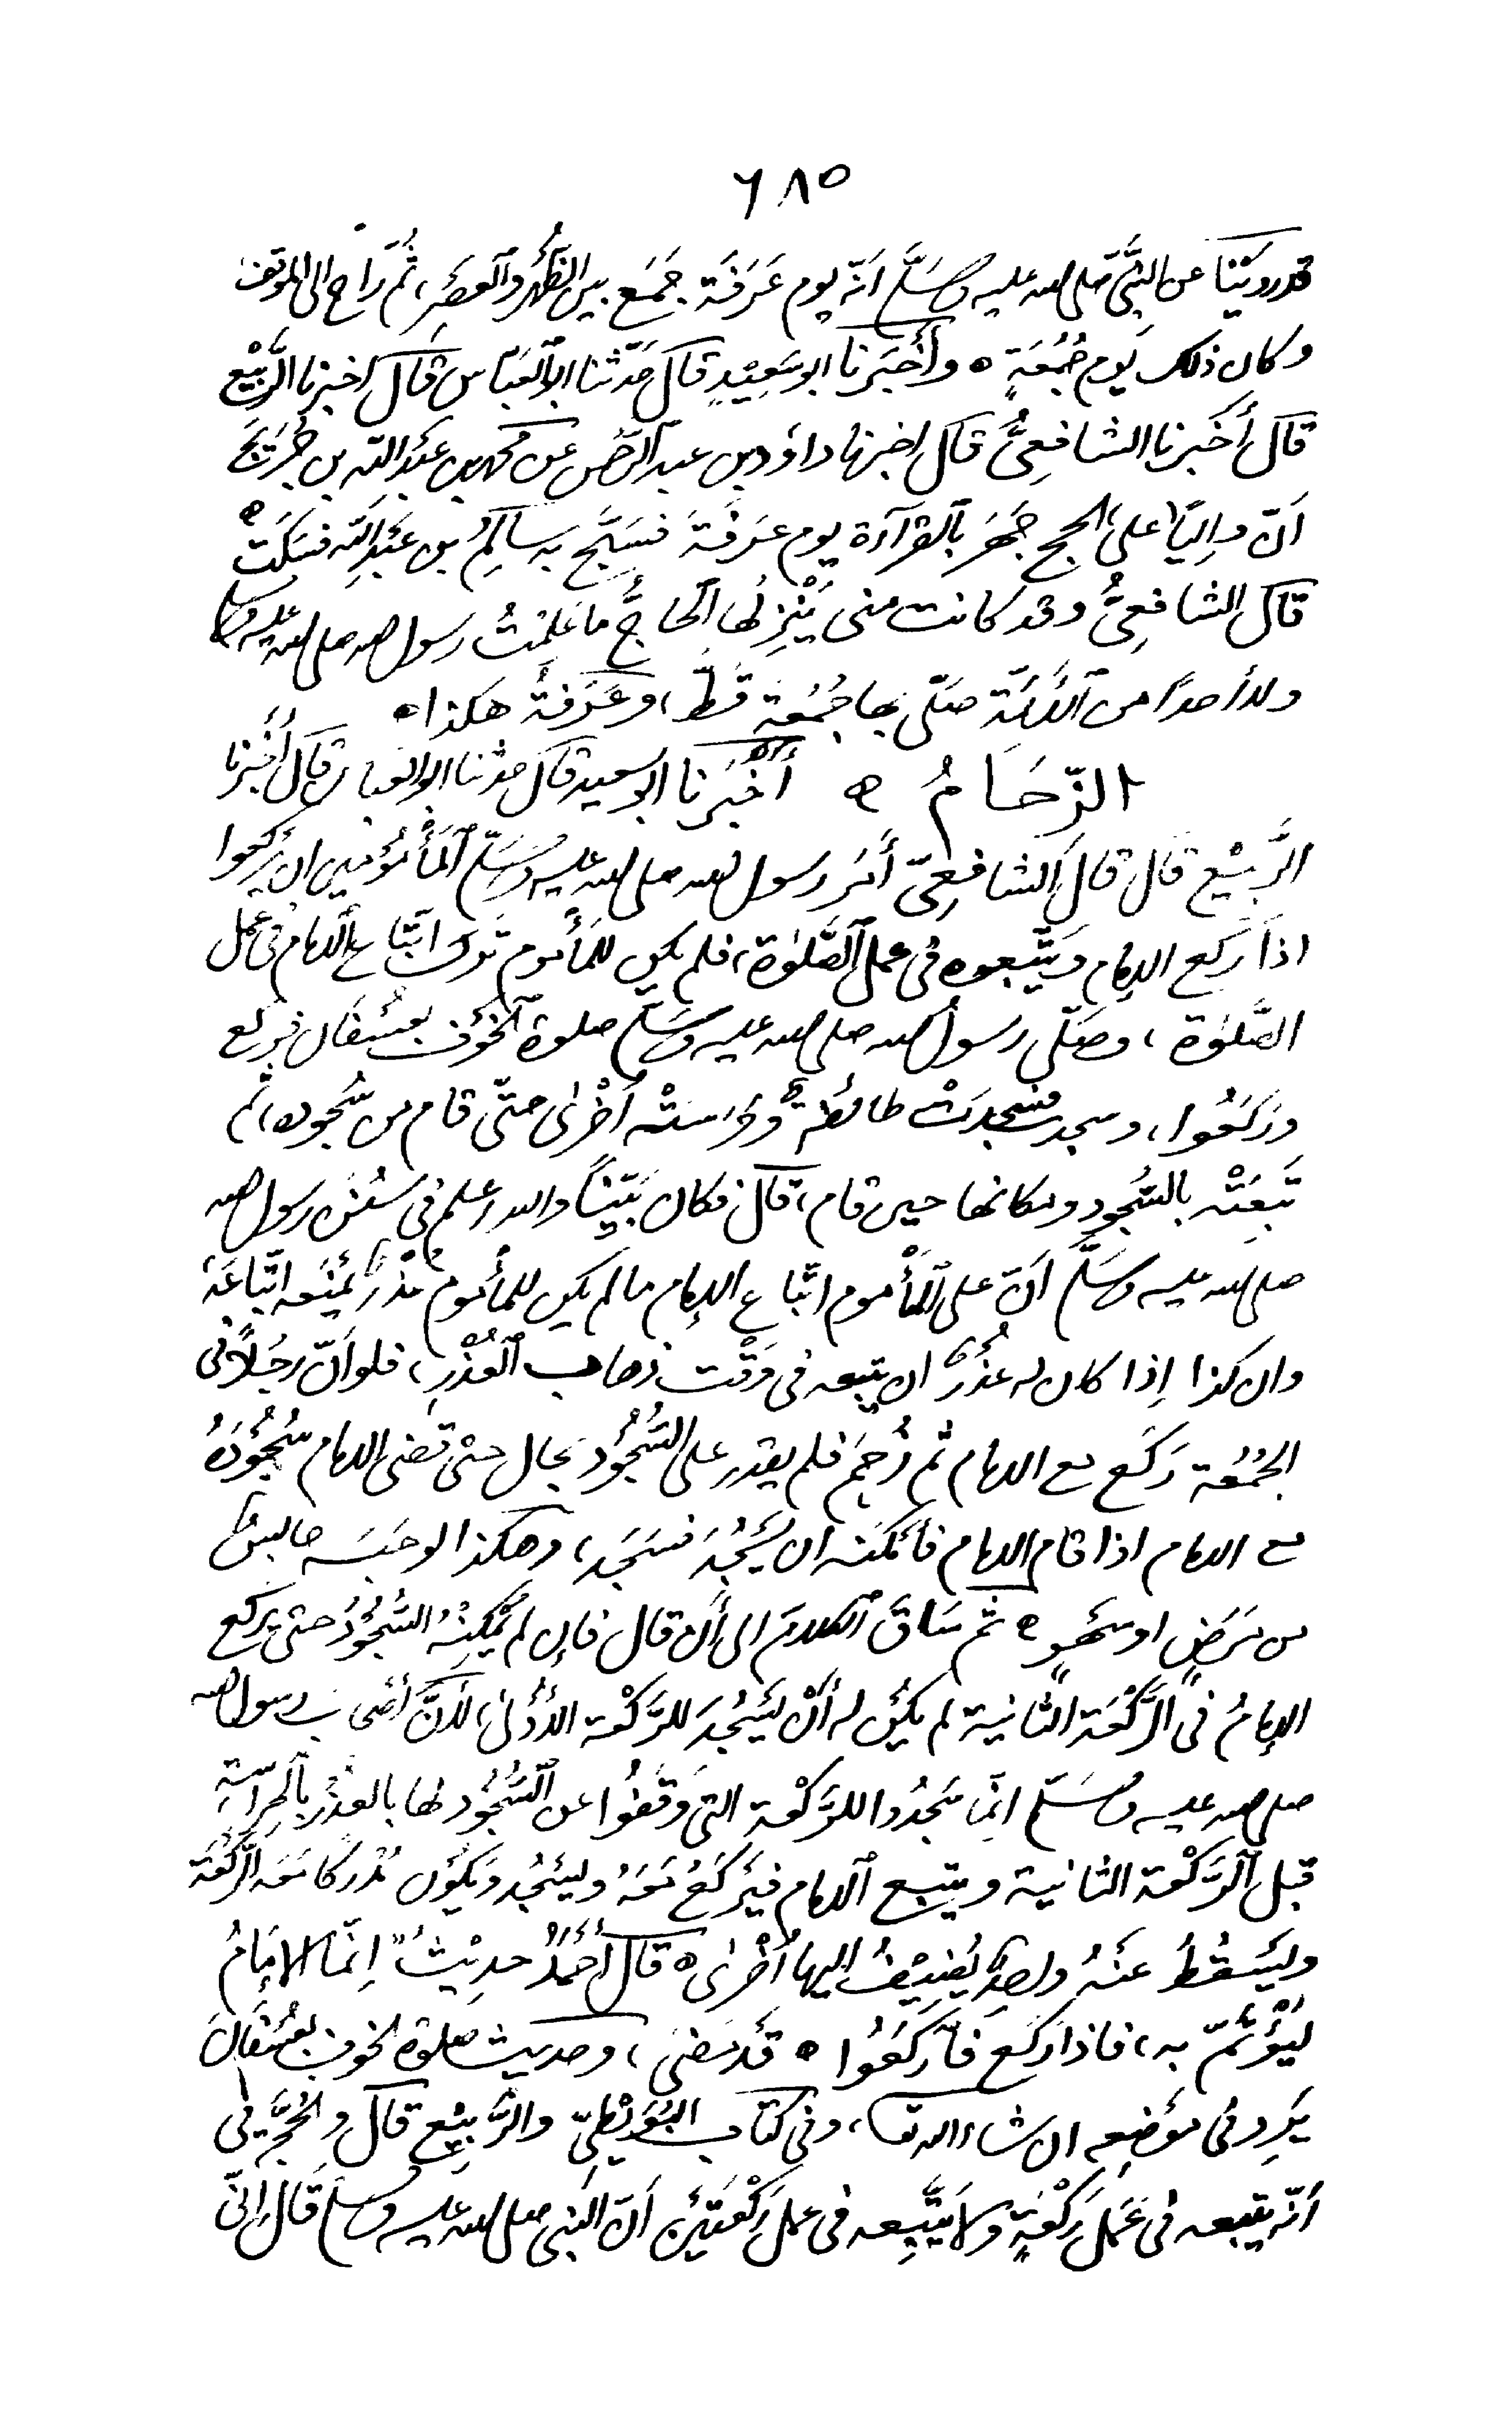 ٦٨٥
قد روينا عن النبيّ صلى الله عليه وسلّم أنّه يوم عَرَفَة جَمَعَ بين الظُّهْرِ والعَصْرِ، ثُمّ رَاح الى الموقف
وكان ذلك يوم جُمُعَةٍ ه وأَخْبَرنا ابو سَعِيْدٍ قال حَدّثنا ابو العَبّاس قال اخبرنا الرَّبِيْع
قال أَخْبَرنا الشافِعِيُّ قال اخبرنا داؤد بن عبد الرّحمن عن محمد بن عَبْد الله بن جُرَيْج
أنّ وَالِيًا على الحج جَهَرَ بالقرآءة يوم عَرَفَةَ فسَبَّحَ به سالِمُ بن عَبْدِ الله فسَكَتَ ه
قال الشافِعِيُّ وقد كانت منى يَنْزِلُها الحاجُّ ما عَلِمْتُ رسول الله صلى الله عليه وسلم
ولا أحدًا من الأئمّة صَلّى بها جُمُعَة قَطُّ، وعَرَفَةُ هكذا ه
الزّحَامُ ه أَخْبَرَنا ابو سعيد قال حدثنا ابو العباس قال أَخْبَرنا
الرَّبِيْع قال قال الشافِعِيّ أَمَر رسول الله صلى الله عليه وسَلّم المَأْمُوْمين ان يركعوا
اذا رَكع الإمام ويَتَّبِعوه في عمل الصَّلوٰة، فلم يكن للمَأموم ترك اتّباع الإمام في عمل
الصَّلوٰة، وصَلّى رسول الله صلى الله عليه وسَلّم صلوة الخَوْف بعُسْفَان فركع
ورَكَعُوا، وسجد فسَجدتْ طائفة وحَرَستْه أُخْرٰى حتّى قام من سُجُوده، ثم
تَبِعَتْه بالسُّجُودِ ومكانها حين قام، قال فكان بَيِّنًا والله اعلم في سُنَن رسول الله
صلى الله عليه وسَلَّم أنّ على المَأْموم اتّباع الإمام ما لم يكن للمأموم عُذْرٌ يَمْنَعه اتّباعَهُ
وان كذا إِذا كان له عُذْرٌ ان يتبعه في وَقْت ذهاب العُذْرِ، فلو أنّ رجُلاً في
الجُمُعَة رَكَع مع الامام ثم زُحِمَ فلم يقدر على السُّجُوْد بحال حتى قضى الامام سُجُوْدَهُ
مع الامام اذا قام الامام فأمْكَنه ان يَسْجُدَ فسَجَد، وهكذا لو حَبَسَه حابسٌ
من مَرَضٍ او سَهْوٍ ه ثم سَاقَ الكلامَ الى أَن قال فإن لم يُمْكِنْهُ السُّجُوْدُ حتى يركع
الإمامُ في الرَّكْعَة الثانية لم يكُن له أَنْ يَسْجُدَ للرَّكْعة الأُوْلٰى، لأنّ أَصْحاب رسول الله
صلى الله عليه وسَلّم انّما سَجَدُوا للرَّكْعة التي وَقَفُوا عن السُّجُوْد لها بالعُذْرِ بالحِرَاسَةِ
قبل الرَّكْعة الثانية ويتبع الامام فيَرْكَعُ مَعَهُ ويَسْجُد ويَكُوْن مُدْرِكًا مَعَه الرَّكْعَة
ويَسْقُطُ عَنْهُ واحِدةٌ يُضِيْفُ اليها أُخْرٰى ه قال أَحْمَدُ حديْثُ إِنّما الإمَامُ
لِيُؤْتَمّ به، فاذا رَكَعَ فارْكَعُوا ه قد مَضٰى، وحديث صلوة الخوف بعُسْفَان
يَرِدُ في مَوْضِعِه ان شاء الله تعا، وفي كتاب البُوَيْطِيّ والرَّبِيْع قال والحُجَّة في
أنّه يتبعه في عَمَل رَكْعَةٍ ولا يَتَّبِعه في عمل رَكْعَتَيْن أنّ النبي صلى الله عليه وسلم قال إنّي